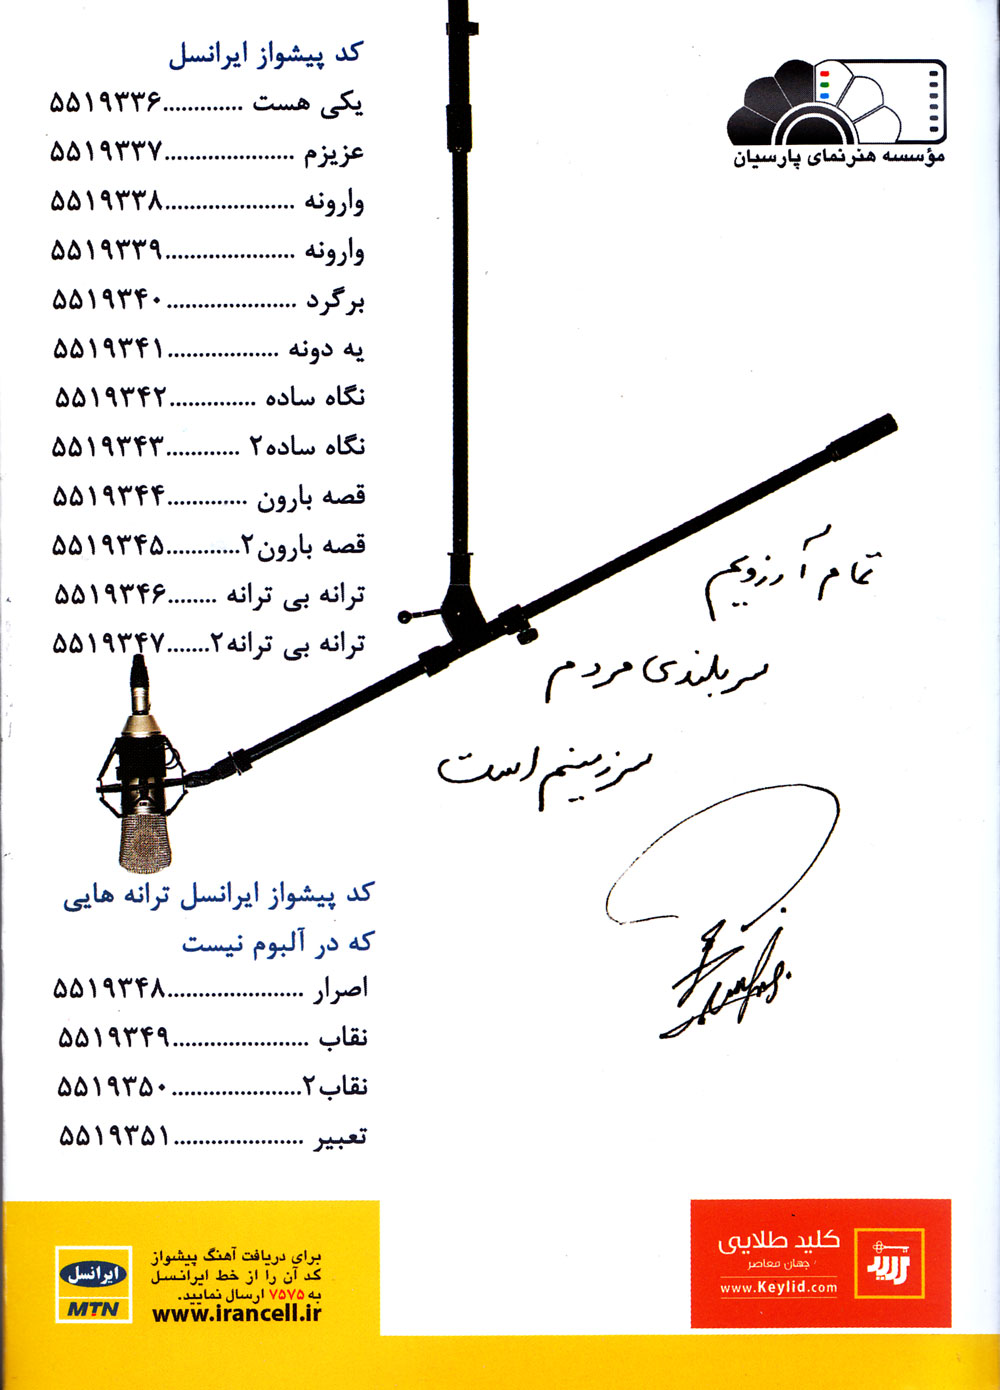 کد پیشواز ایرانسل
یکی هست .............۵۵۱۹۳۳۶
عزیزم .....................۵۵۱۹۳۳۷
وارونه .....................۵۵۱۹۳۳۸
وارونه .....................۵۵۱۹۳۳۹
برگرد .....................۵۵۱۹۳۴۰
یه دونه ..................۵۵۱۹۳۴۱
نگاه ساده ..............۵۵۱۹۳۴۲
نگاه ساده۲ ............۵۵۱۹۳۴۳
قصه بارون .............۵۵۱۹۳۴۴
قصه بارون۲............۵۵۱۹۳۴۵
ترانه بی ترانه ........۵۵۱۹۳۴۶
ترانه بی ترانه۲.......۵۵۱۹۳۴۷
مؤسسه هنرنمای پارسیان
تمام آرزویم
سربلندی مردم
سرزمینم است
کد پیشواز ایرانسل ترانه هایی
که در آلبوم نیست
اصرار ......................۵۵۱۹۳۴۸
نقاب ......................۵۵۱۹۳۴۹
نقاب۲.....................۵۵۱۹۳۵۰
تعبیر .....................۵۵۱۹۳۵۱
کلید طلایی
جهان معاصر
www.Keylid.com
ایرانسل
MTN
برای دریافت آهنگ پیشواز
کد آن را از خط ایرانسل
به ۷۵۷۵ ارسال نمایید.
www.irancell.ir